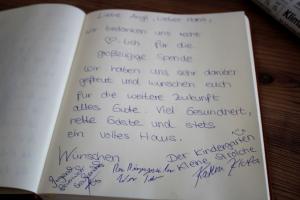 Liebe Angi, Lieber Hans,
wir bedanken uns recht
♡-lich für die
großzügige Spende
Wir haben uns sehr darüber
gefreut und wünschen euch
für die weitere Zukunft
alles Gute. Viel Gesundheit,
nette Gäste und stets
ein volles Haus.
Wünschen
Der Kindergarten
Kleine Strolche